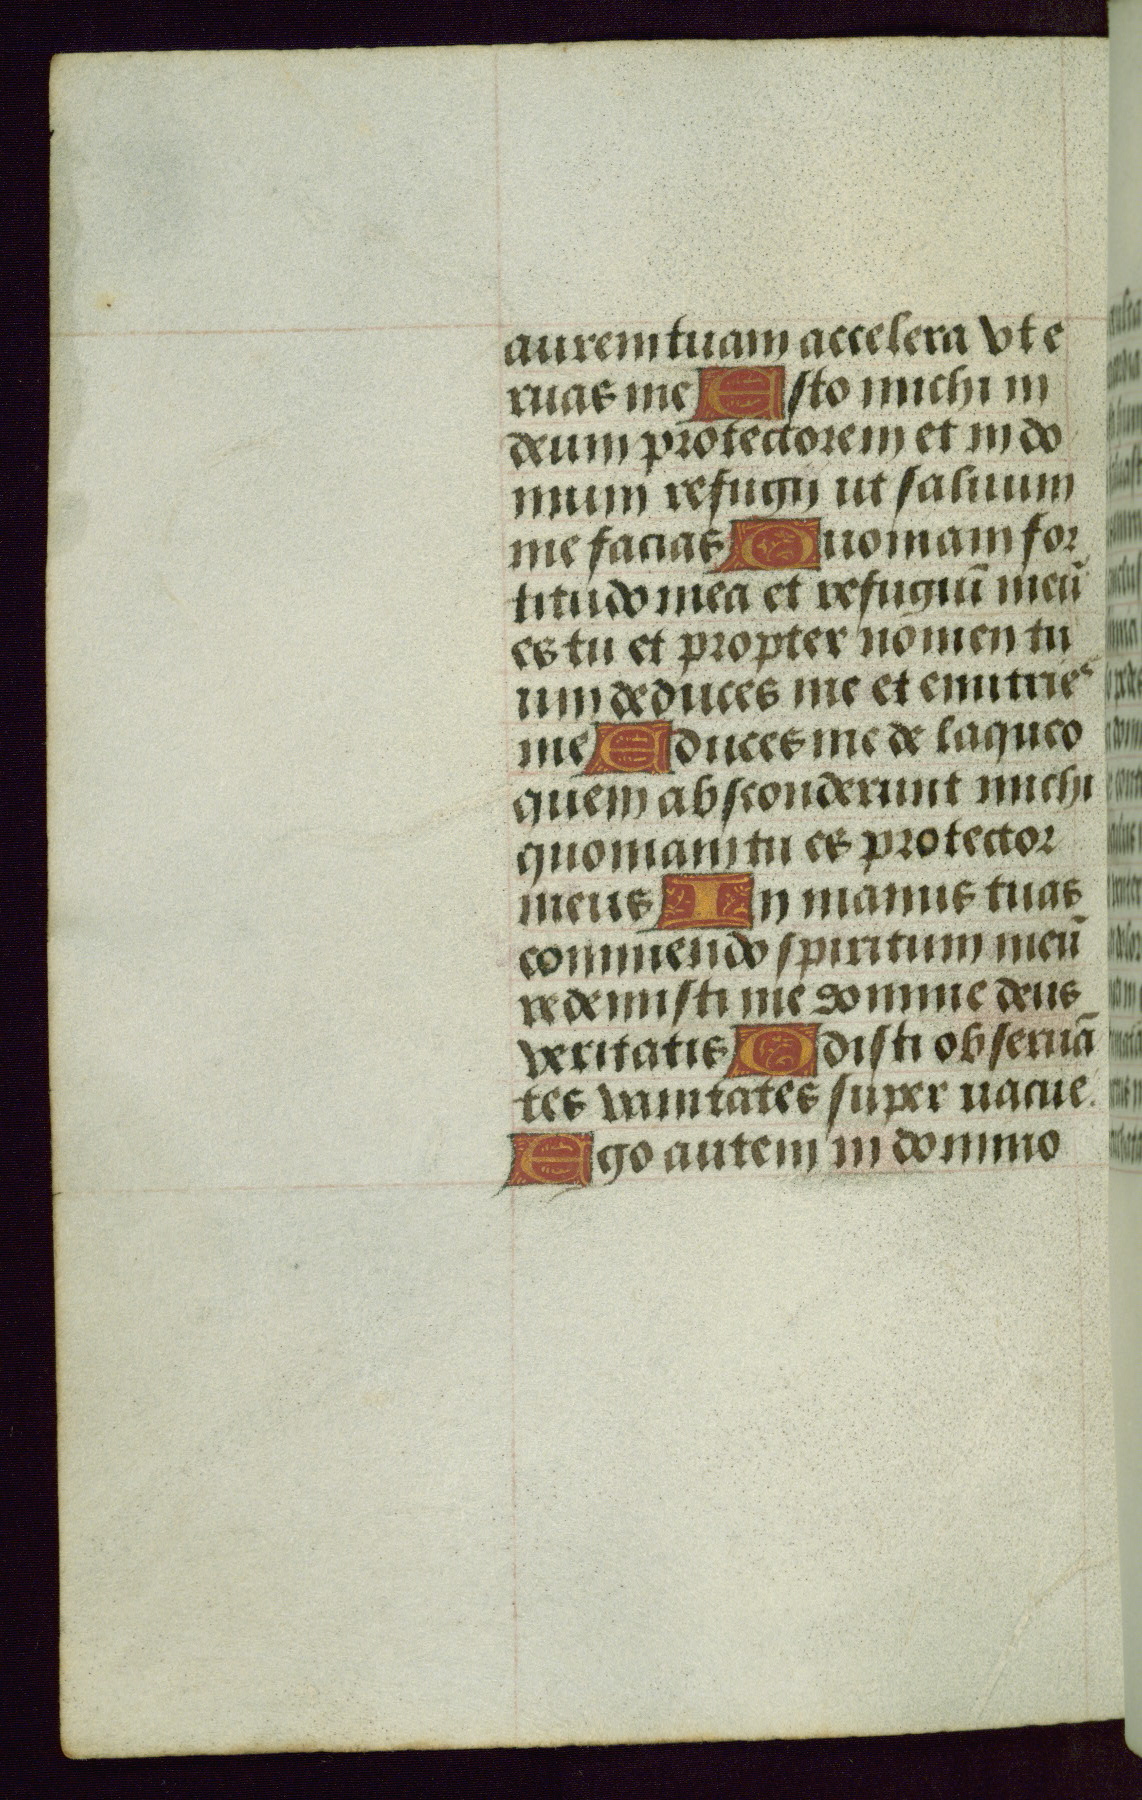 aurem tuam accelera vt e
ruas me Esto michi in
deum protectorem et in do
mum refugij ut saluum
me facias Quoniam for
titudo mea et refugiū meū
es tu et propter nomen tu
um deduces me et enutries
me Educes me de laqueo
quem absconderunt michi
quoniam tu es protector
meus In manus tuas
commendo spiritum meū
redemisti me domine deus
veritatis Odisti obseruā
tes vanitates super uacue.
Ego autem in domino